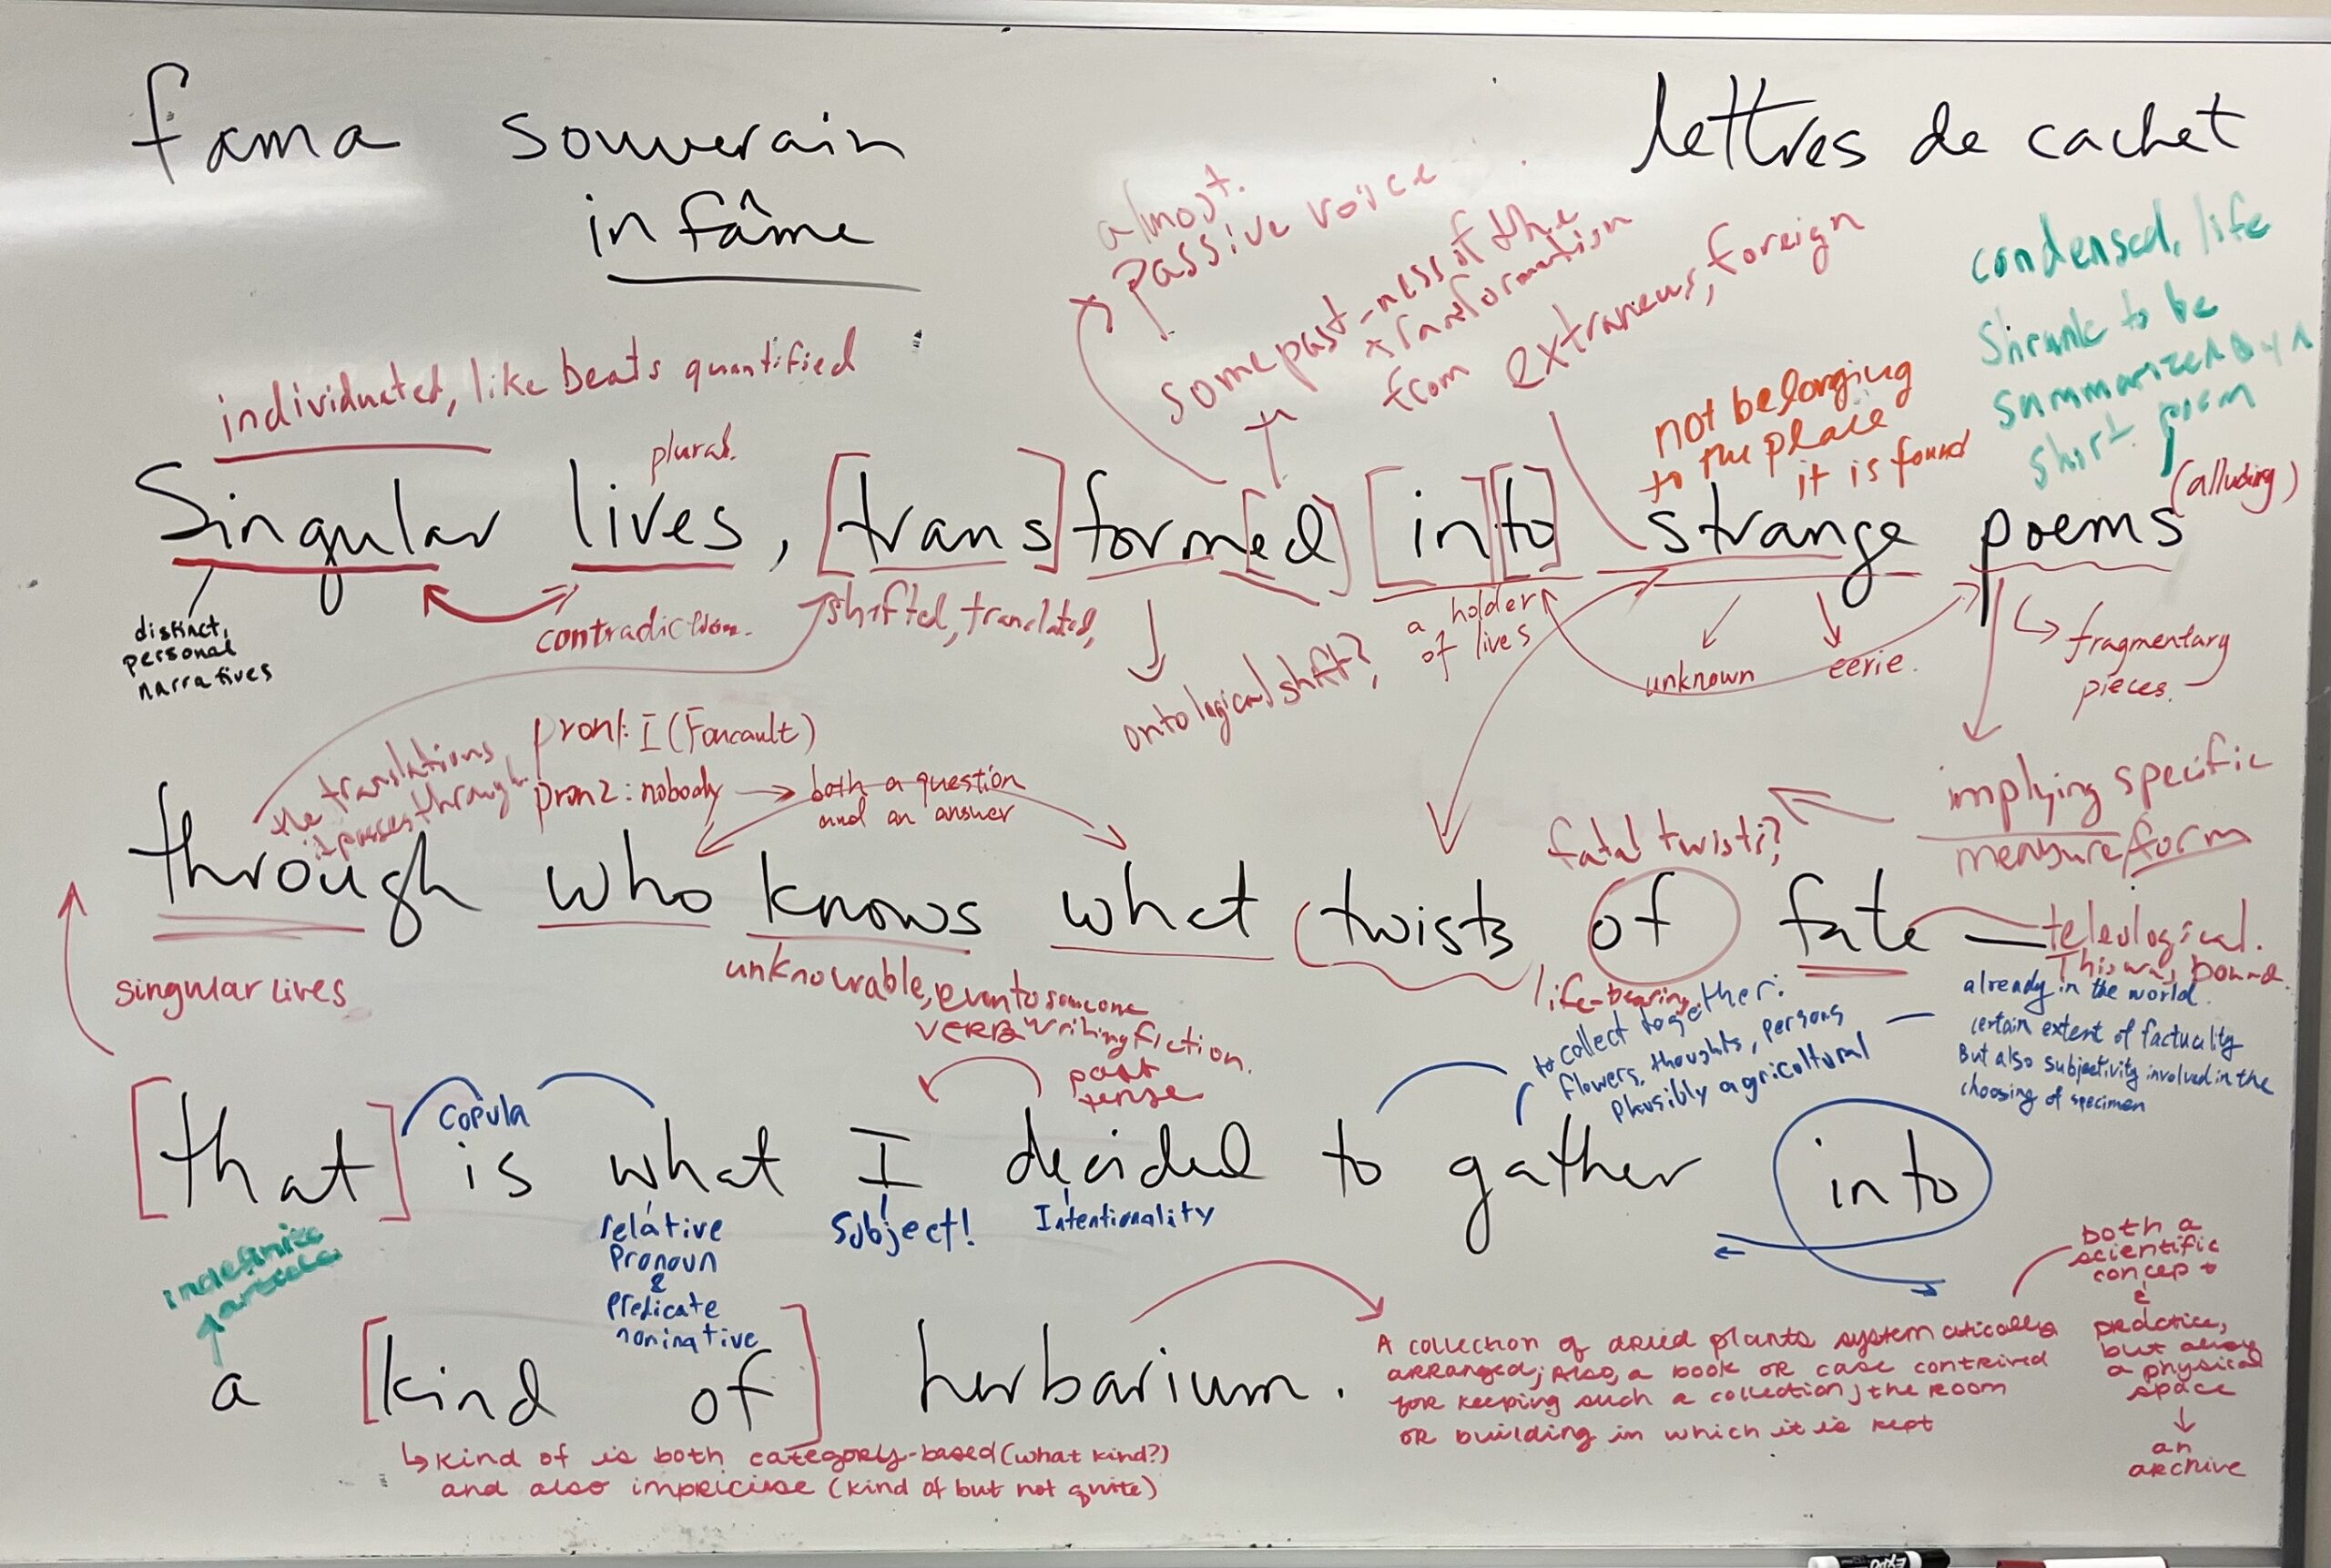 fama souverain lettres de cachet
infâme
almost.
passive voice
some past-ness of the
transformation
from extraneus, foreign
condensed, life
shrunk to be
summarized by a
short poem
(alluding)
individuated, like beats quantified
plural.
not belonging
to the place
it is found
Singular lives, [trans]form[ed] [in][to] strange poems
distinct,
personal
narratives
contradiction.
shifted, translated,
ontological shift?
a holder
of lives
unknown
eerie.
fragmentary
pieces.
the translations
it passes through.
pron1: I (Foucault)
pron2: nobody → both a question
and an answer
fatal twists?
implying specific
measure/form
through who knows what (twists of fate —
teleological.
This was bound.
singular lives
unknowable, even to someone
writing fiction.
VERB
past
tense
life-bearing
to collect together:
flowers, thoughts, persons
plausibly agricultural
already in the world.
certain extent of factuality
But also subjectivity involved in the
choosing of specimen
copula
[that] is what I decided to gather into
indefinite
article
relative
pronoun
&
predicate
nominative
Subject!
Intentionality
both a
scientific
concept
&
practice,
but also
a physical
space
↓
an
archive
a [kind of] herbarium.
A collection of dried plants systematically
arranged; Also, a book or case contrived
for keeping such a collection; the room
or building in which it is kept
↳ kind of is both category-based (what kind?)
and also impricise (kind of but not quite)
EXPO